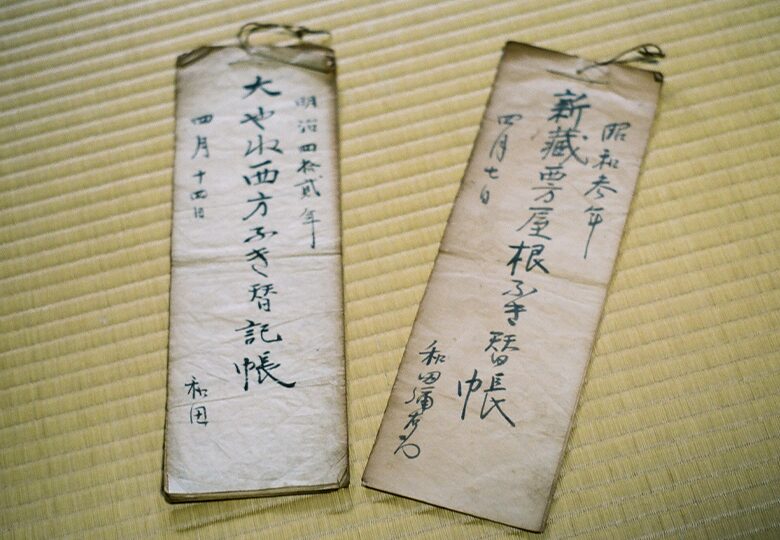 明治四拾貳年
大やね西方ふき替記帳
四月十四日
和田
昭和参年
新藏西方屋根ふき替帳
四月七日
和田彌右衛門